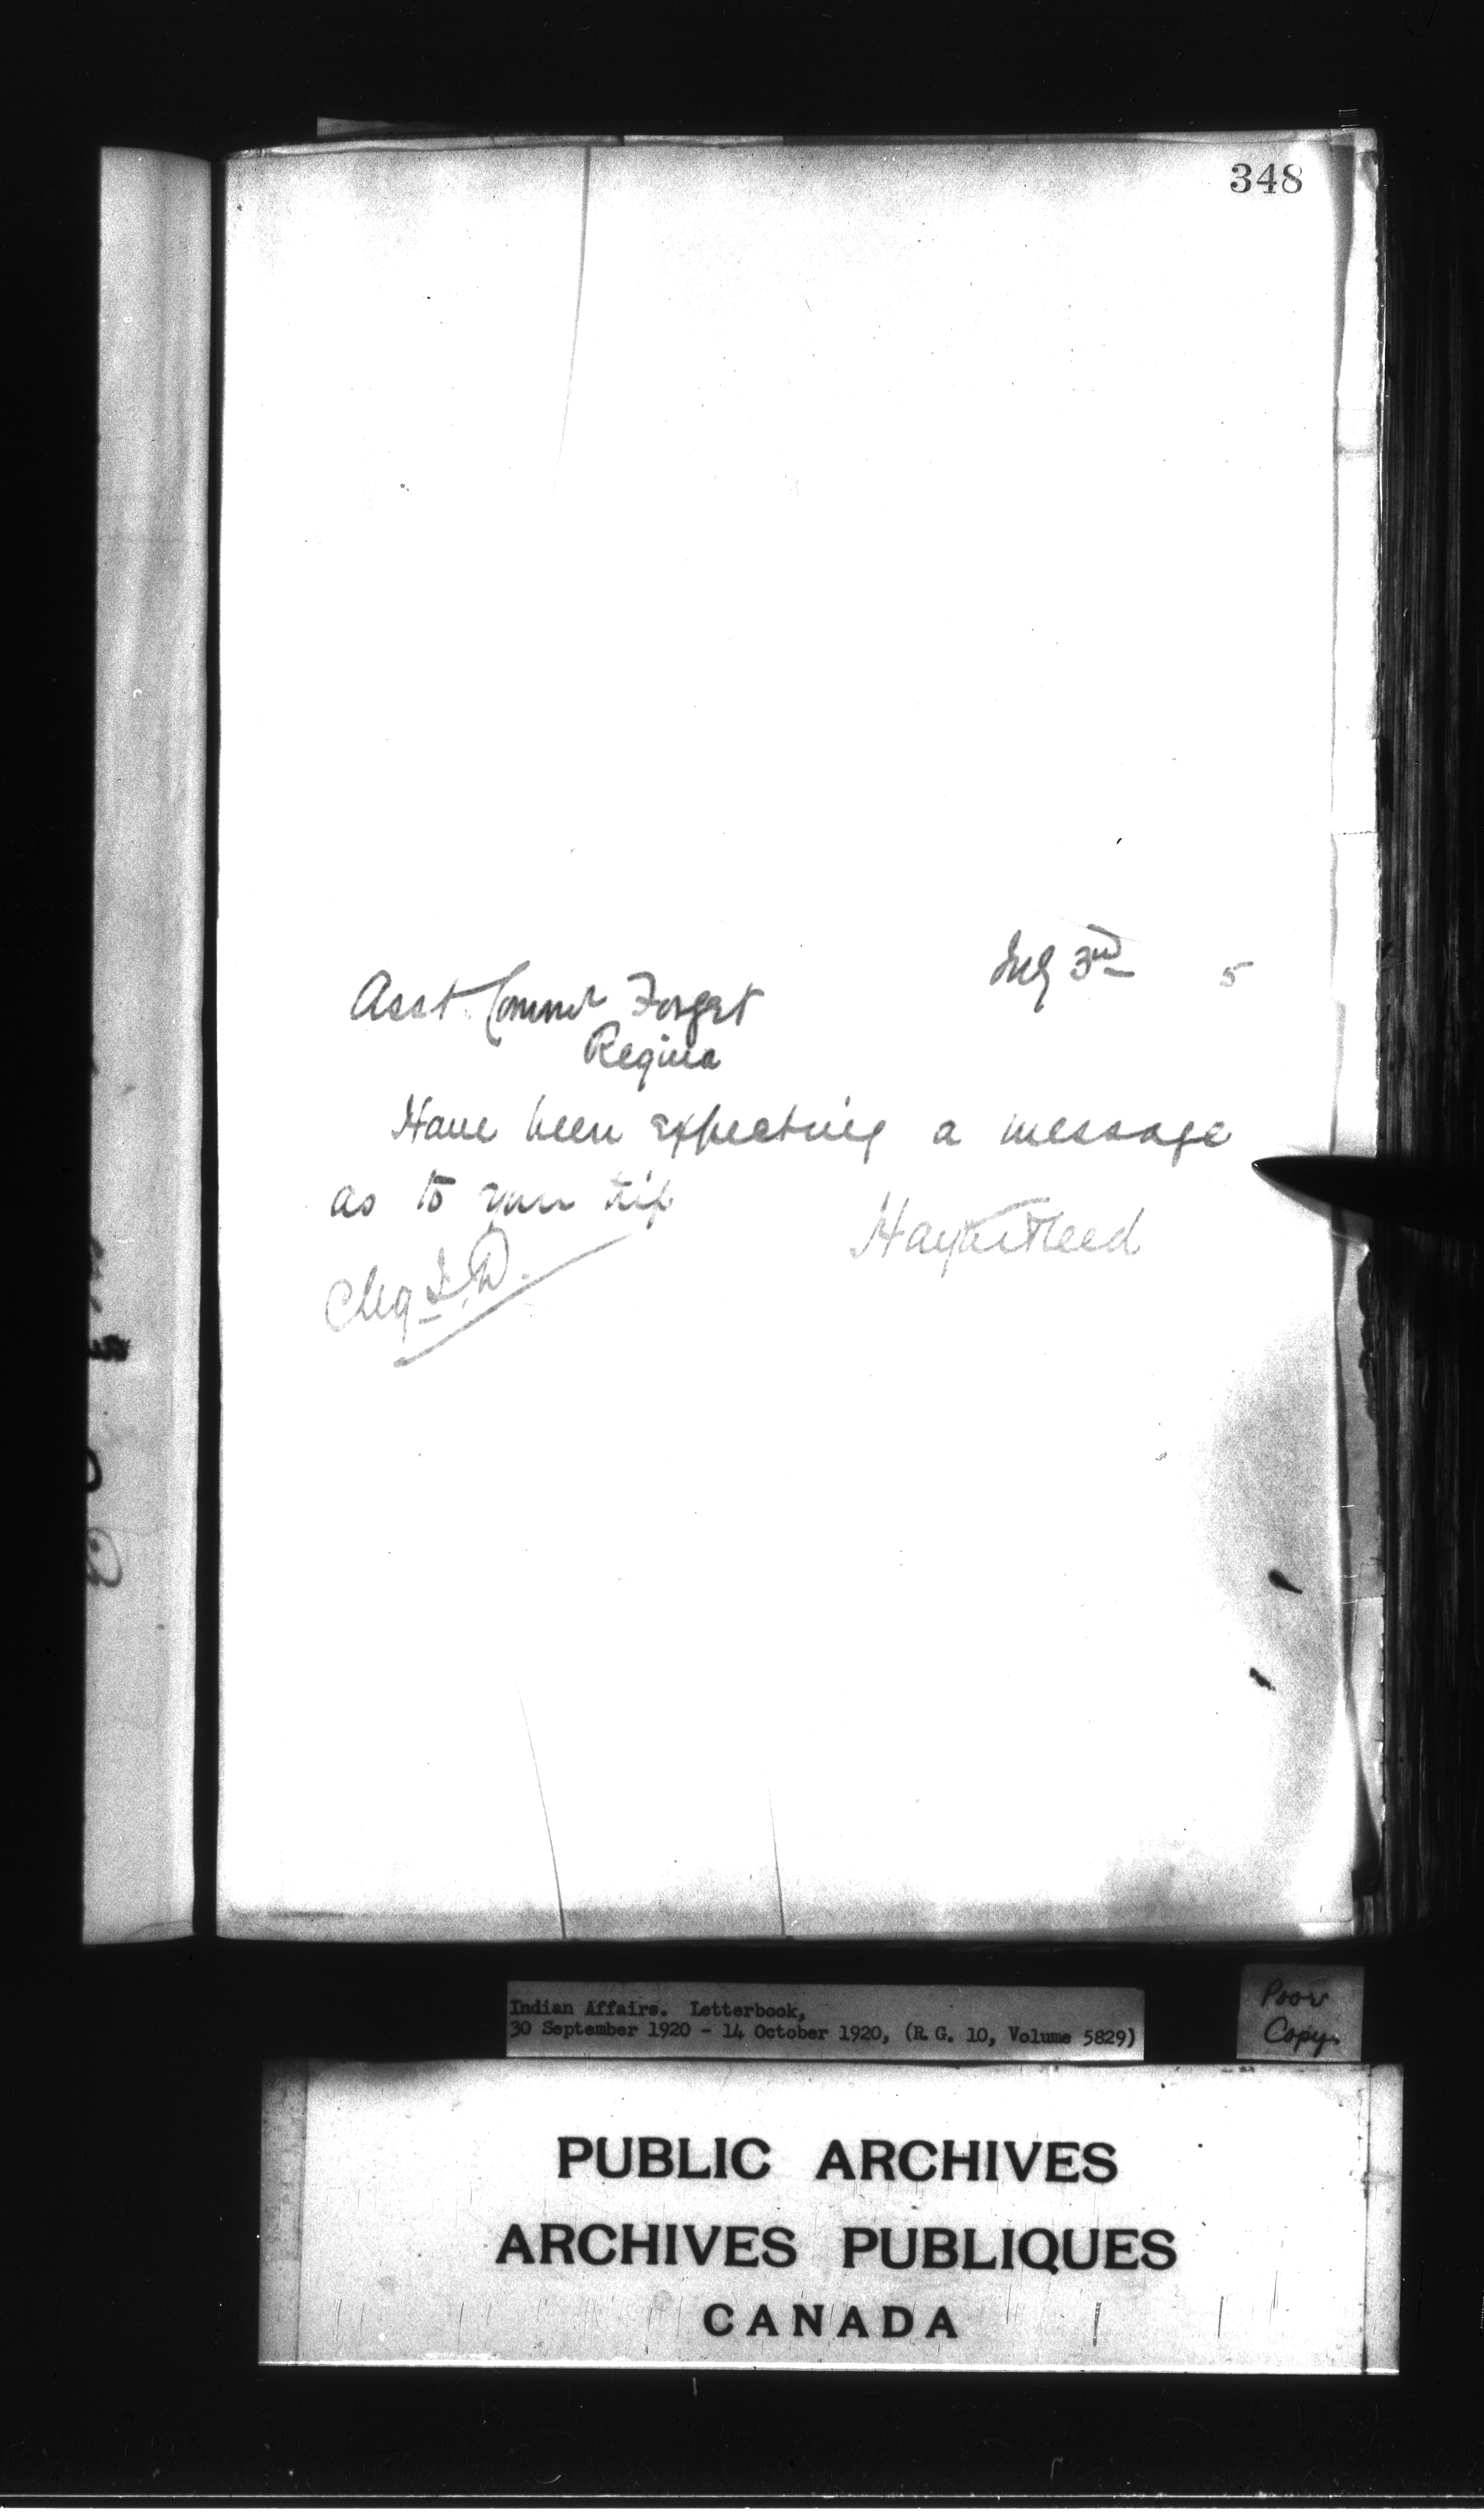 348
July 3rd 5
Asst. Commr Forget
Regina
Have been expecting a message
as to your trip
Hayter Reed
Chg I.D.
Indian Affairs. Letterbook,
30 September 1920 - 14 October 1920, (R.G. 10, Volume 5829)
Poor
Copy
PUBLIC ARCHIVES
ARCHIVES PUBLIQUES
CANADA